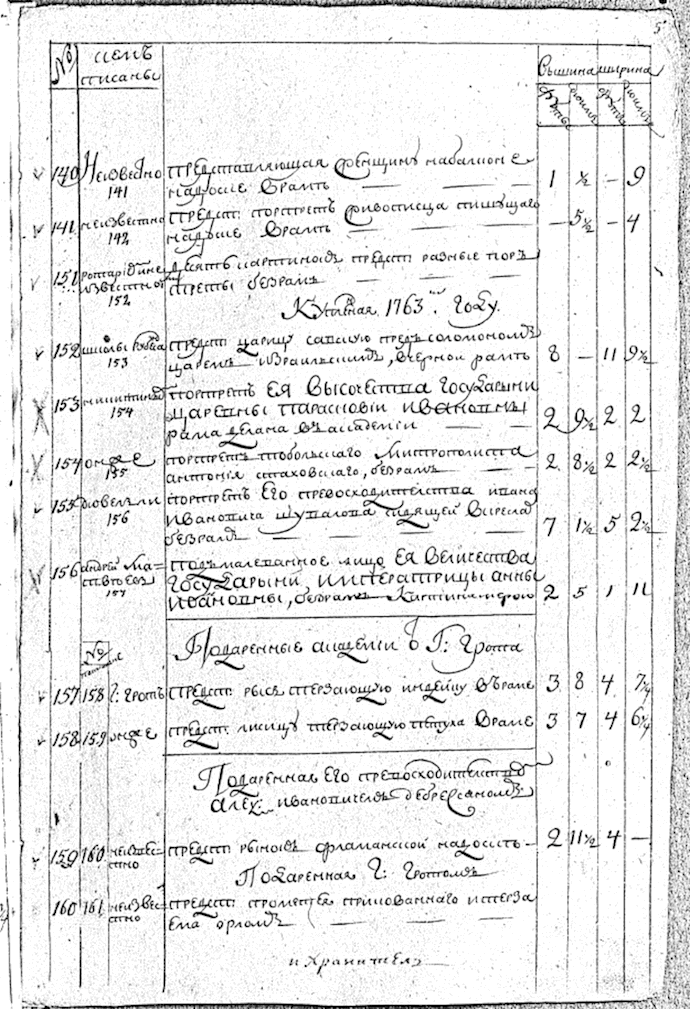 5
№ чемъ писаны
Вышина ширина
футы дюймы футы дюймы
140 Неизвестно представляющая женщину на балконе
141 на доске в рамѣ — — — 1 ½ — 9
141 неизвестно предст: портретъ живописца пишущаго
142 на доске в рамѣ — — — — 5½ — 4
151 ротарï десять картинокъ предст: разные пор
152 треты без рамъ
Куплѣная 1763.го году.
152 школы предст: царицу савскую предъ соломономъ
153 царемъ израильскимъ, в черной рамѣ 8 — 11 9½
153 портретъ ЕЯ Высочества Государыни
154 царевны Парасковiи Ивановны
рама делана в академiи — — 2 9½ 2 2
154 онже портретъ тобольскаго митрополита
155 антонiя стаховскаго, без рамъ — — 2 8½ 2 2½
155 портретъ Его превосходительства ивана
156 Ивановича шувалова сидящей в креслахъ
без рамъ — — — 7 1½ 5 2½
156 андрей мат подмалеванное лицо Ея Величества
ствѣевъ Государыни, императрицы анны
157 Ивановны, без рамъ 2 5 1 11
№
Подаренные академiи о Г: Грота
157 158 Г: Гротъ предст: рысь терзающую индейку в раме 3 8 4 7¼
158 159 онже предст: лисицу терзающую петуха в раме 3 7 4 6¼
Подаренная Его превосходительствомъ
Алех: ивановичемъ
159 160 неизвес предст: рынокъ фламанской на доскѣ — 2 11½ 4 —
тно
Подаренная Г: Гротомъ
160 161 неизвес предст: прометея прикованнаго и терза
тно ема орломъ — — — —
и хранител